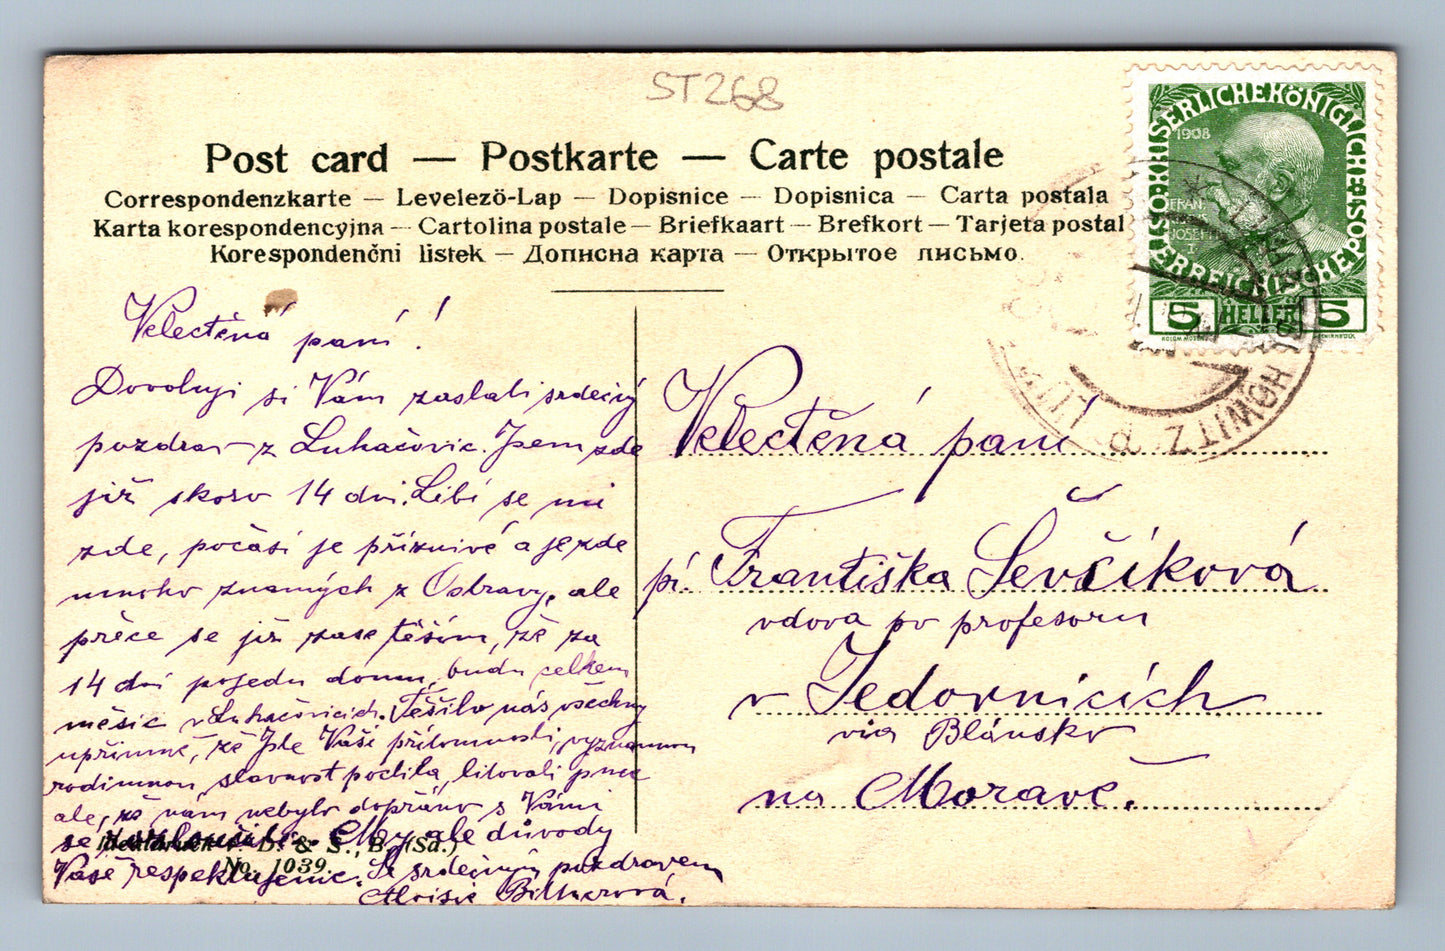 ST268
Post card — Postkarte — Carte postale
Correspondenzkarte — Levelezö-Lap — Dopisnice — Dopisnica — Carta postala
Karta korespondencyjna — Cartolina postale — Briefkaart — Brefkort — Tarjeta postal
Korespondenčni listek — Дописна карта — Открытое письмо.
KAISERLICHE KÖNIGLICHE
ÖSTERREICHISCHE POST
1908
FRANZ
JOSEPH
I
5 HELLER 5
HOWITZ
Velectěná paní!
Dovoluji si Vám zaslati srdečný
pozdrav z Luhačovic. Jsem zde
již skoro 14 dní. Líbí se mi
zde, počasí je příznivé a je zde
mnoho známých z Ostravy, ale
přece se již zase těším, že za
14 dní pojedu domu, budu celkem
měsíc v Luhačovicích. Těšilo nás všechny
upřímně, že jste Vaší přítomností, významnou
rodinnou slavnost poctila, litovali jsme
ale, že nám nebylo dopřáno s Vámi
se. My ale důvody
Vaše respektujeme. Se srdečným pozdravem
Aloisie
& S., B. (Sa.)
No. 1039.
Velectěná paní
pí. Františka Ševčíková
vdova po profesoru
v Jedovnicích
via Blánsko
na Moravě.